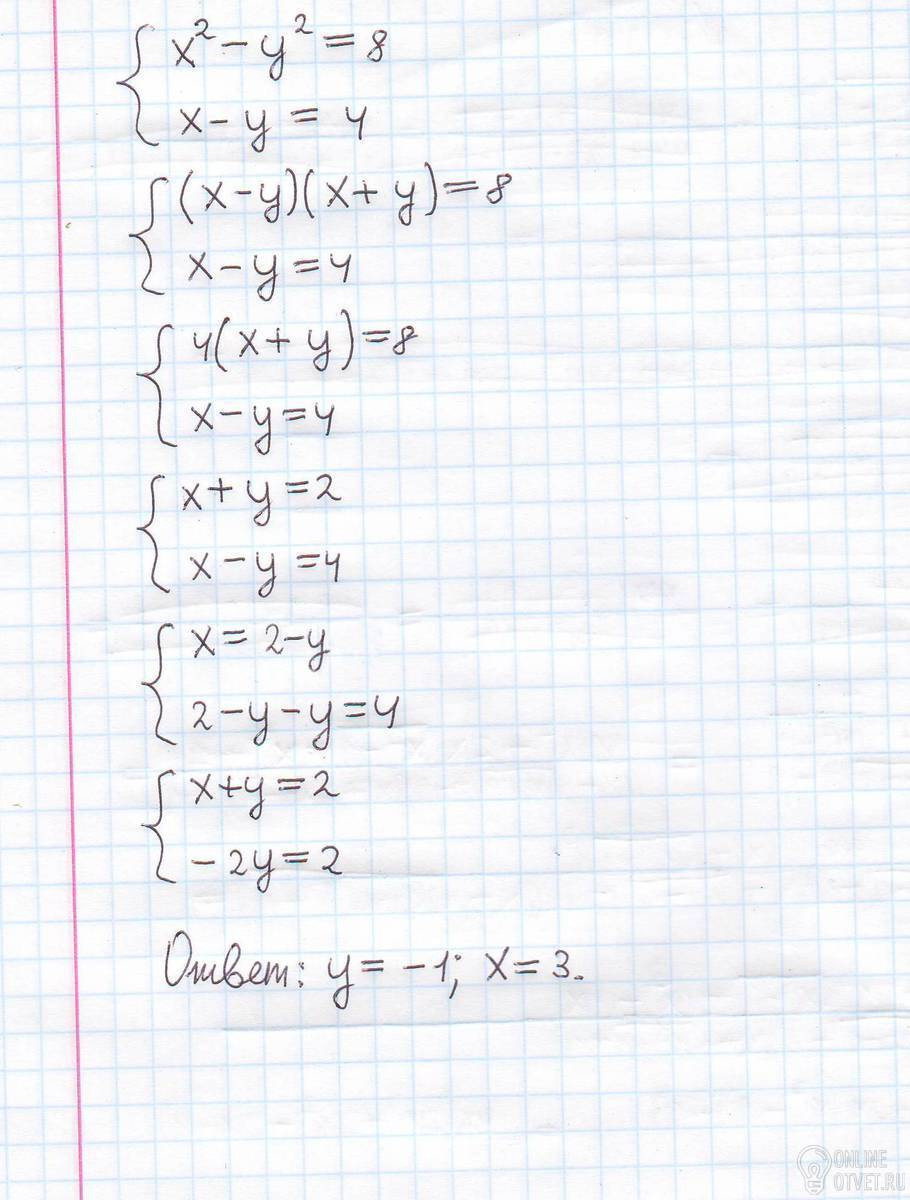 x² - y² = 8
x - y = 4
(x - y)(x + y) = 8
x - y = 4
4(x + y) = 8
x - y = 4
x + y = 2
x - y = 4
x = 2 - y
2 - y - y = 4
x + y = 2
- 2y = 2
Ответ: y = -1; x = 3.
ONLINE
OTVET.RU